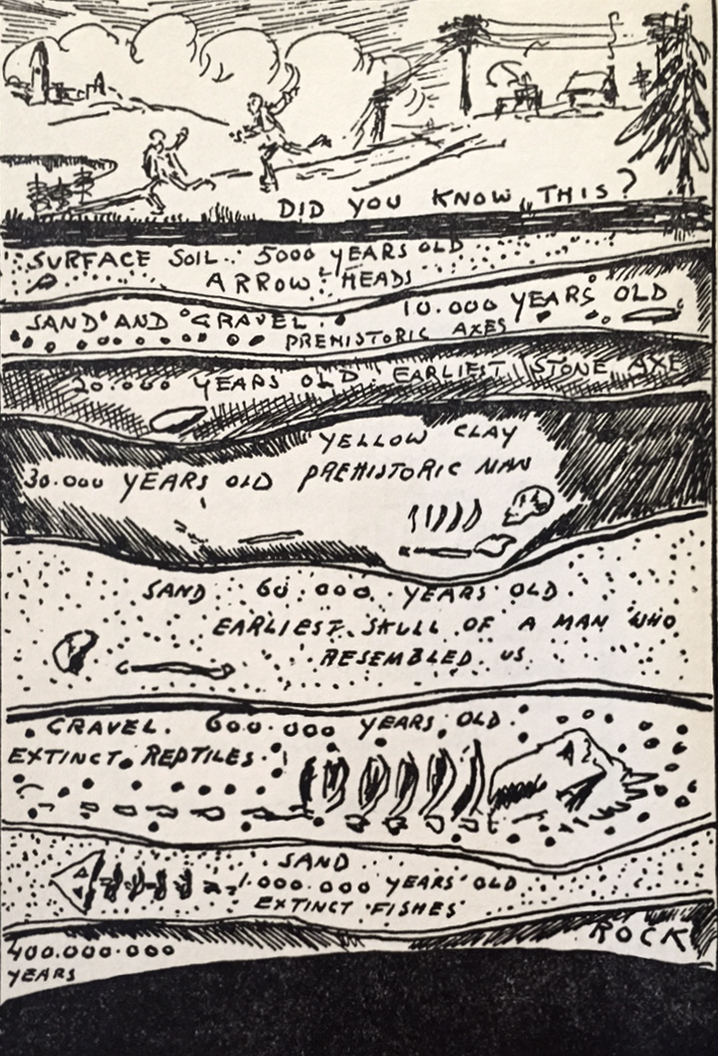 DID YOU KNOW THIS?
SURFACE SOIL. 5000 YEARS OLD
ARROW HEADS
10.000 YEARS OLD
SAND AND GRAVEL.
PREHISTORIC AXES
20.000 YEARS OLD. EARLIEST STONE AXE
YELLOW CLAY
30.000 YEARS OLD PREHISTORIC MAN
SAND 60.000. YEARS OLD.
EARLIEST SKULL OF A MAN WHO
RESEMBLED US
GRAVEL. 600.000 YEARS OLD.
EXTINCT REPTILES.
SAND
1.000.000 YEARS OLD
EXTINCT FISHES
ROCK
400.000.000
YEARS